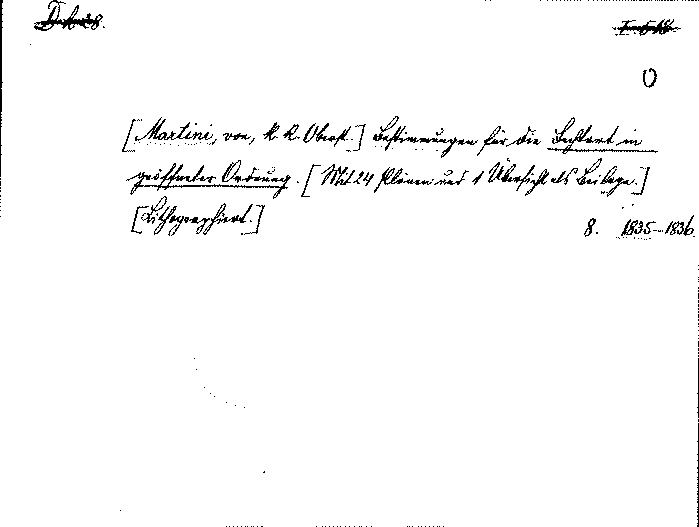 O
[Martini, von, k. k. Oberst.] Bestimmungen für die Fechtart in
geöffneter Ordnung. [Mit 24 Plänen und 1 Übersicht als Beilage.]
[Lithographiert.] 8. 1835-1836